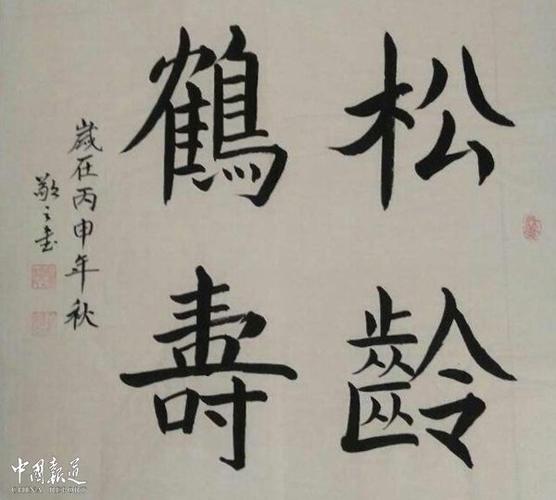 松齡
鶴壽
歲在丙申年秋
敬之書
中國報道
CHINA REPORT